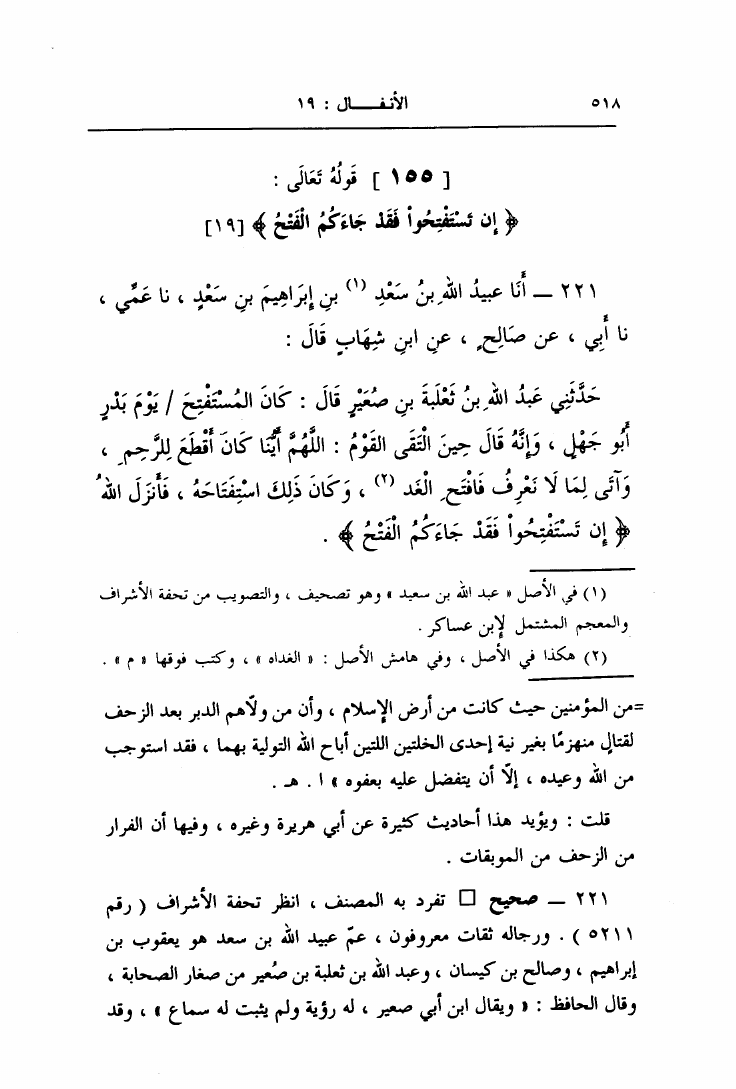 ٥١٨ الأنفـــــال : ١٩
[ ١٥٥ ] قَولُهُ تَعَالَى :
﴿ إِن تَسْتَفْتِحُواْ فَقَدْ جَاءَكُمُ الْفَتْحُ ﴾ [١٩]
٢٢١ ــ أَنَا عبيدُ اللهِ بنُ سَعْدِ (١) بنِ إِبَرَاهِيمَ بنِ سَعْدٍ ، نا عَمِّي ،
نا أَبِي ، عن صَالِحٍ ، عنِ ابنِ شِهَابٍ قَالَ :
حَدَّثَنِي عَبدُ اللهِ بنُ ثَعْلَبةَ بنِ صُعَيْرٍ قَالَ : كَانَ المُسْتَفْتِحَ / يَوْمَ بَدْرٍ
أَبُو جَهْلٍ ، وَإِنَّهُ قَالَ حِينَ الْتَقَى القَوْمُ : اللَّهُمَّ أَيُّنَا كَانَ أَقْطَعَ لِلرَّحِمِ ،
وَآتَى لِمَا لَا نَعْرِفُ فَافْتَحِ الْغَد (٢) ، وَكَانَ ذَلِكَ اسْتِفَتَاحَهُ ، فَأَنزَلَ اللهُ
﴿ إِن تَسْتَفْتِحُواْ فَقَدْ جَاءَكُمُ الْفَتْحُ ﴾ .
(١) في الأصل « عبد الله بن سعيد » وهو تصحيف ، والتصويب من تحفة الأشراف
والمعجم المشتمل لإبن عساكر .
(٢) هكذا في الأصل ، وفي هامش الأصل : « الغداه » ، وكتب فوقها « م » .
=من المؤمنين حيث كانت من أرض الإسلام ، وأن من ولاّهم الدبر بعد الزحف
لقتالٍ منهزمًا بغير نية إحدى الخلتين اللتين أباح الله التولية بهما ، فقد استوجب
من الله وعيده ، إلاّ أن يتفضل عليه بعفوه » ا . هـ .
قلت : ويؤيد هذا أحاديث كثيرة عن أبي هريرة وغيره ، وفيها أن الفرار
من الزحف من الموبقات .
٢٢١ ــ صحيح □ تفرد به المصنف ، انظر تحفة الأشراف ( رقم
٥٢١١ ) . ورجاله ثقات معروفون ، عمّ عبيد الله بن سعد هو يعقوب بن
إبراهيم ، وصالح بن كيسان ، وعبد الله بن ثعلبة بن صُعير من صغار الصحابة ،
وقال الحافظ : « ويقال ابن أبي صعير ، له رؤية ولم يثبت له سماع » ، وقد